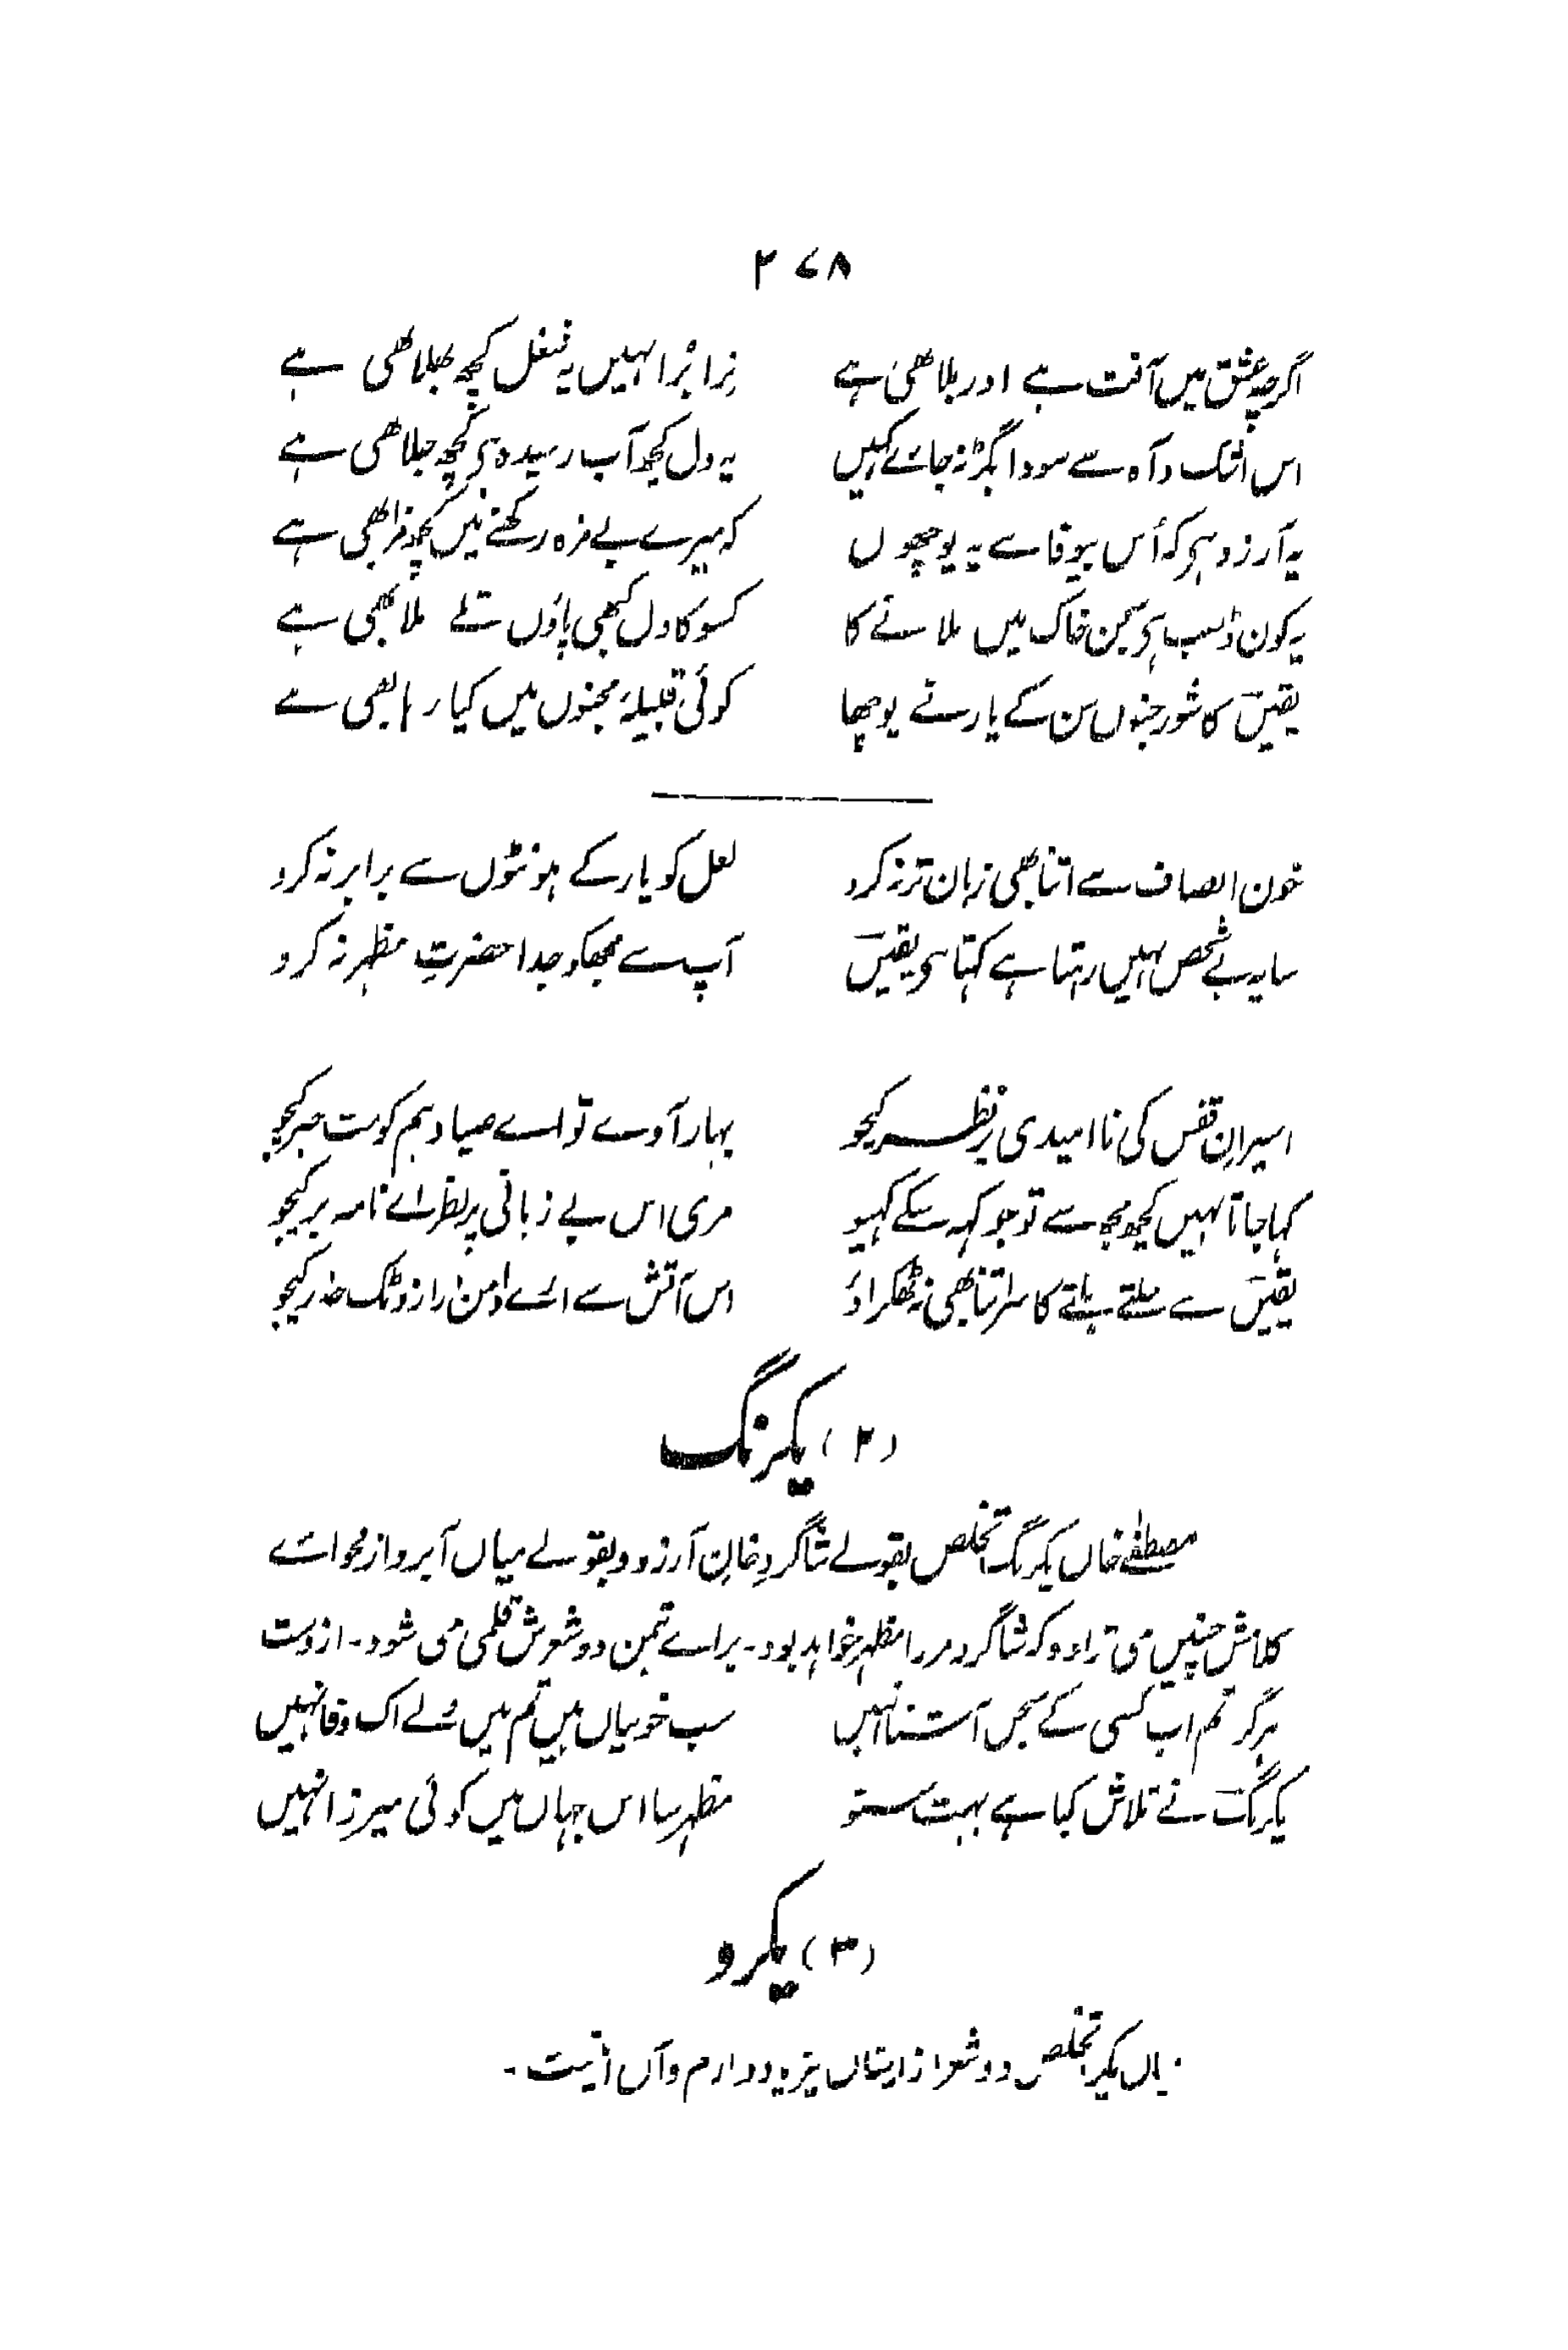 ۲۷۸
اگرچہ عشق میں آفت ہے اور بلا بھی ہے نرا بُرا نہیں یہ شغل کچھ بھلا بھی ہے
اس اشک و آہ سے سودا بگڑ نہ جائے کہیں یہ دل کچھ آب رسیدہ ہو کچھ جلا بھی ہے
یہ آرزو ہو کہ اُس بیوفا سے یہ پوچھوں کہ میرے بے مزہ رکھنے میں کچھ مزا بھی ہے
یہ کون ڈھب ہو سجن خاک میں ملانے کا کسو کا دل کبھی پاؤں تلے ملا بھی ہے
یقینؔ کا شور جنوں سن کے یار نے پوچھا کوئی قبیلۂ مجنوں میں کیا رہا بھی ہے
خون انصاف سے اتنا بھی زبان تر نہ کرو لعل کو یار کے ہونٹوں سے برابر نہ کرو
سایہ بے شخص نہیں رہتا ہے کہتا ہو یقینؔ آپ سے مجھکو جدا حضرتِ مظہر نہ کرو
اسیرانِ قفس کی ناامیدی پر نظر کیجو بہار آوے تو اے صیاد ہم کو مت خبر کیجو
کہا جاتا نہیں کچھ مجھ سے تو جو کہہ سکے کہیو مری اس بے زبانی پر نظر اے نامہ بر کیجو
یقینؔ سے جلتے بلتے کا سر اتنا بھی نہ ٹھکراؤ اس آتش سے اے دامن دراز و ٹک حذر کیجو
(۲) یکرنگ
مصطفےٰ خاں یکرنگ تخلص بقولے شاگردِ خانِ آرزو و بقولے میاں آبرو از فحوائے
کلامش چنیں می تراود کہ شاگرد مرزا مظہر خواہد بود۔ براے تیمن دو شعرش قلمی می شود۔ ازوست
ہرگز تم اب کسی کے سجن آشنا نہیں سب خوبیاں ہیں تم میں ولے اک وفا نہیں
یکرنگؔ نے تلاش کیا ہے بہت سنو مظہر سا اس جہاں میں کوئی میرزا نہیں
(۳) یکرو
میاں یکرو تخلص دو شعر از ایشاں دارم و آں اینست۔